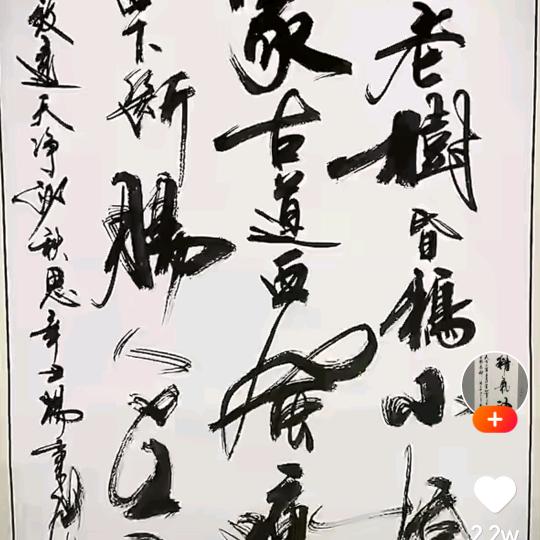 老樹昏鴉小
家古道西風瘦
下斷腸人在
致遠天净沙秋思辛丑
2.2w